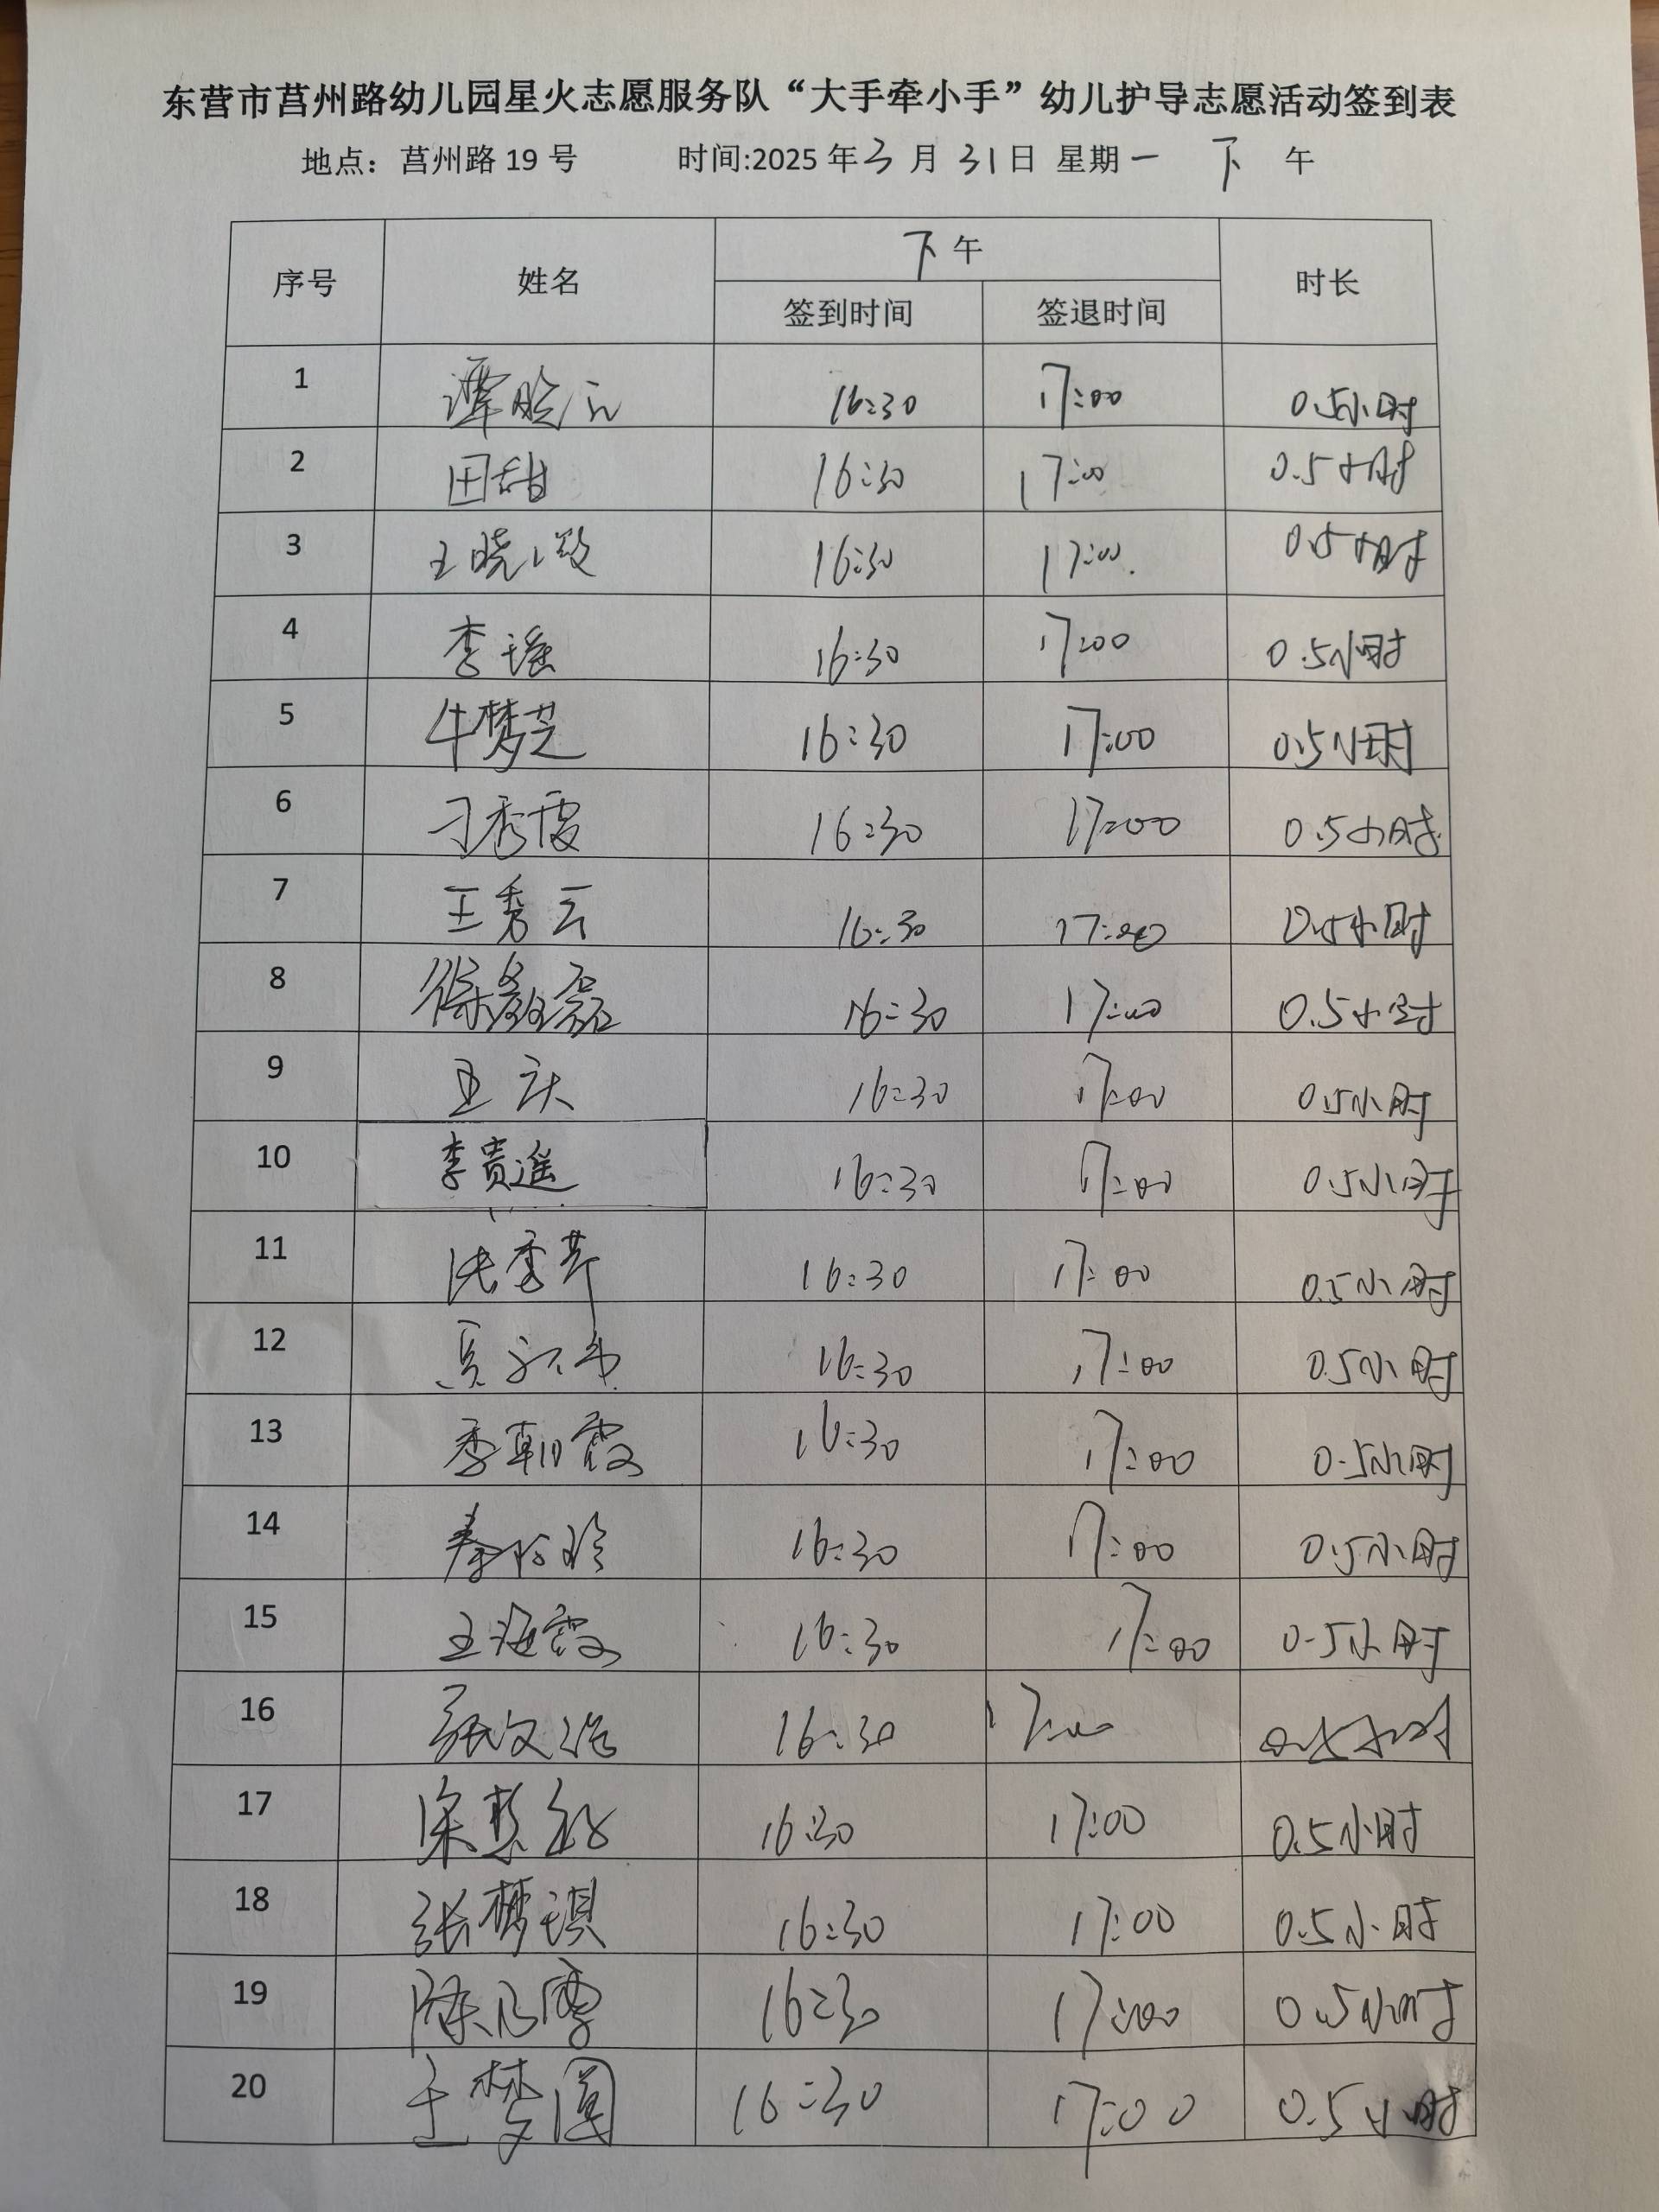 东营市莒州路幼儿园星火志愿服务队“大手牵小手”幼儿护导志愿活动签到表
地点：莒州路 19 号 时间:2025 年 3 月 31 日 星期 一 下 午
序号 姓名 下 午 时长
签到时间 签退时间
1 谭 16:30 17:00 0.5小时
2 田甜 16:30 17:00 0.5小时
3 王晓 16:30 17:00 0.5小时
4 李瑶 16:30 17:00 0.5小时
5 牛梦芝 16:30 17:00 0.5小时
6 刁秀霞 16:30 17:00 0.5小时
7 王秀云 16:30 17:00 0.5小时
8 徐磊 16:30 17:00 0.5小时
9 王庆 16:30 17:00 0.5小时
10 李贵遥 16:30 17:00 0.5小时
11 张秀芹 16:30 17:00 0.5小时
12 16:30 17:00 0.5小时
13 李朝霞 16:30 17:00 0.5小时
14 秦玲 16:30 17:00 0.5小时
15 王海霞 16:30 17:00 0.5小时
16 张文 16:30 17:00 0.5小时
17 宋慧 16:30 17:00 0.5小时
18 张梦琪 16:30 17:00 0.5小时
19 陈乃雪 16:30 17:00 0.5小时
20 王梦圆 16:30 17:00 0.5小时